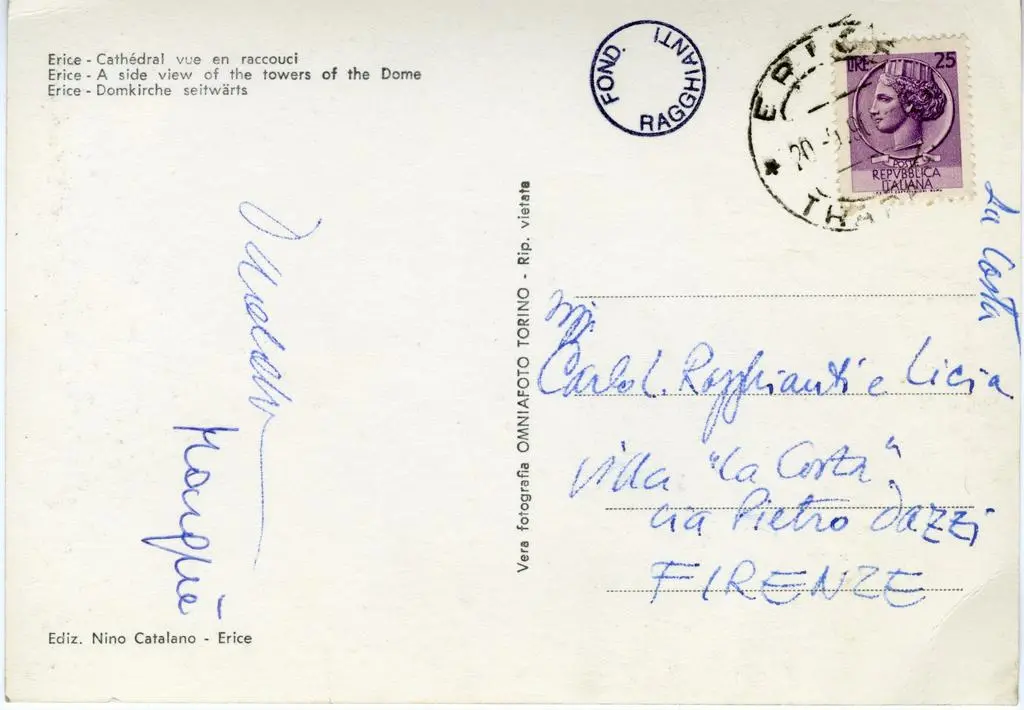 Erice - Cathédral vue en raccouci
Erice - A side view of the towers of the Dome
Erice - Domkirche seitwärts
FOND. RAGGHIANTI
ERICE
20
LIRE 25
POSTE
REPVBBLICA
ITALIANA
Vera fotografia OMNIAFOTO TORINO - Rip. vietata
La Costa
Carlo L. Ragghianti e Licia
Villa "La Costa"
via Pietro Dazzi
FIRENZE
Ediz. Nino Catalano - Erice